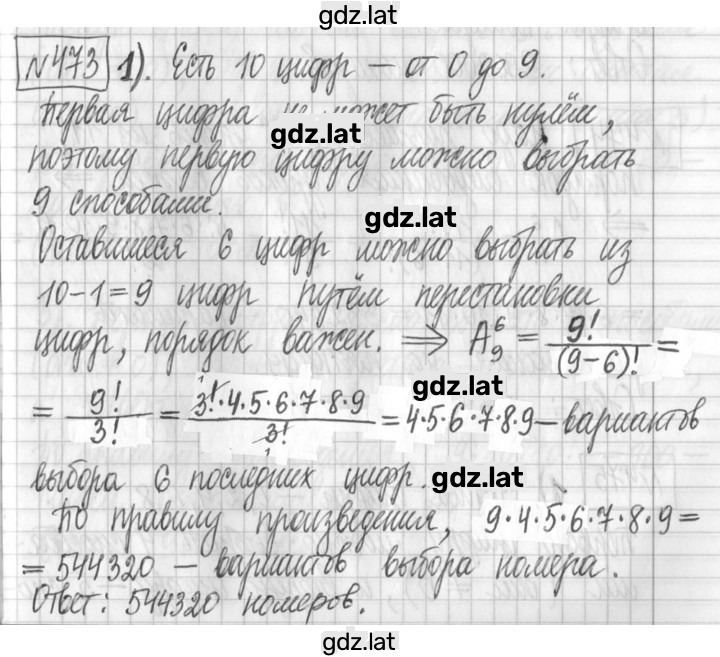 gdz.lat
№473 1). Есть 10 цифр – от 0 до 9.
Первая цифра не может быть нулём,
gdz.lat
поэтому первую цифру можно выбрать
9 способами.
gdz.lat
Оставшиеся 6 цифр можно выбрать из
10-1=9 цифр путём перестановки
цифр, порядок важен. ⟹ A₉⁶ = 9!/(9-6)! =
gdz.lat
= 9!/3! = 3!·4·5·6·7·8·9/3! = 4·5·6·7·8·9 – вариантов
выбора 6 последних цифр.
gdz.lat
По правилу произведения, 9·4·5·6·7·8·9 =
= 544320 – вариантов выбора номера.
Ответ: 544320 номеров.
gdz.lat